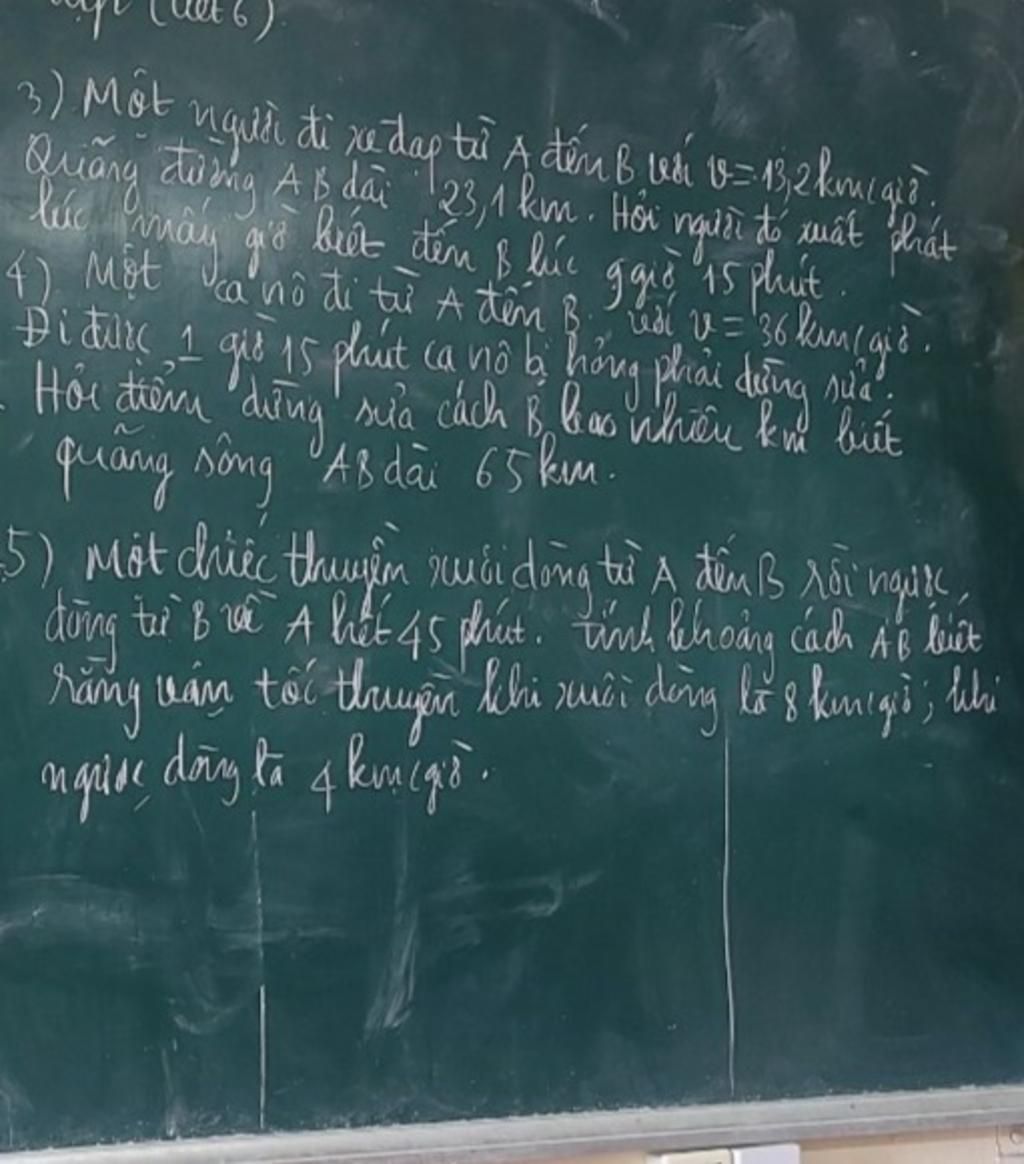 (tiết 6)
3) Một người đi xe đạp từ A đến B với v = 13,2 km/giờ.
Quãng đường AB dài 23,1 km. Hỏi người đó xuất phát
lúc mấy giờ biết đến B lúc 9 giờ 15 phút.
4) Một ca nô đi từ A đến B với v = 36 km/giờ.
Đi được 1 giờ 15 phút ca nô bị hỏng phải dừng sửa.
Hỏi điểm dừng sửa cách B bao nhiêu km biết
quãng sông AB dài 65 km.
5) Một chiếc thuyền xuôi dòng từ A đến B rồi ngược
dòng từ B về A hết 45 phút. Tính khoảng cách AB biết
rằng vận tốc thuyền khi xuôi dòng là 8 km/giờ; khi
ngược dòng là 4 km/giờ.